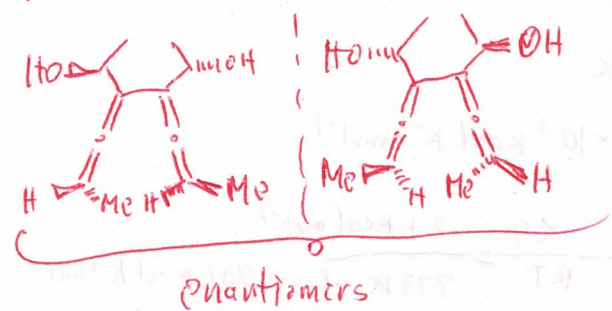 HO OH HO OH
H Me H Me Me H Me H
enantiomers